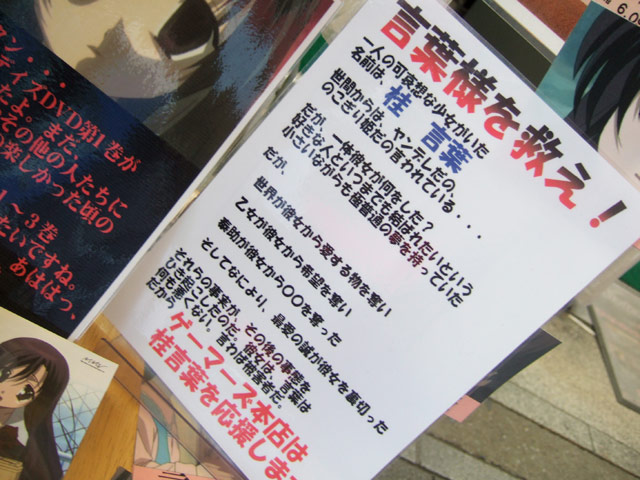 言葉様を救え！
一人の可哀想な少女がいた
名前は、桂 言葉
世間からは、ヤンデレだの、
のこぎり姫だの言われている・・・
だが、一体彼女が何をした？
好きな人といつまでも結ばれたいという
小さいながらも極普通の夢を持っていた
だが、
世界が彼女から愛する物を奪い
乙女が彼女から希望を奪い
泰助が彼女から〇〇を奪った
そしてなにより、最愛の誠が彼女を裏切った
それらの事実が、その後の事態を
ひき起こしたのだ。彼女は、言葉は
何も悪くない、言わば被害者だ。
だから
ゲーマーズ本店は
桂言葉を応援しま
ン・・・
ディズDVD第1巻が
たよ。まだ、
その他の人たちに
楽しかった頃の
1～3巻
たいですね。
、あははっ、